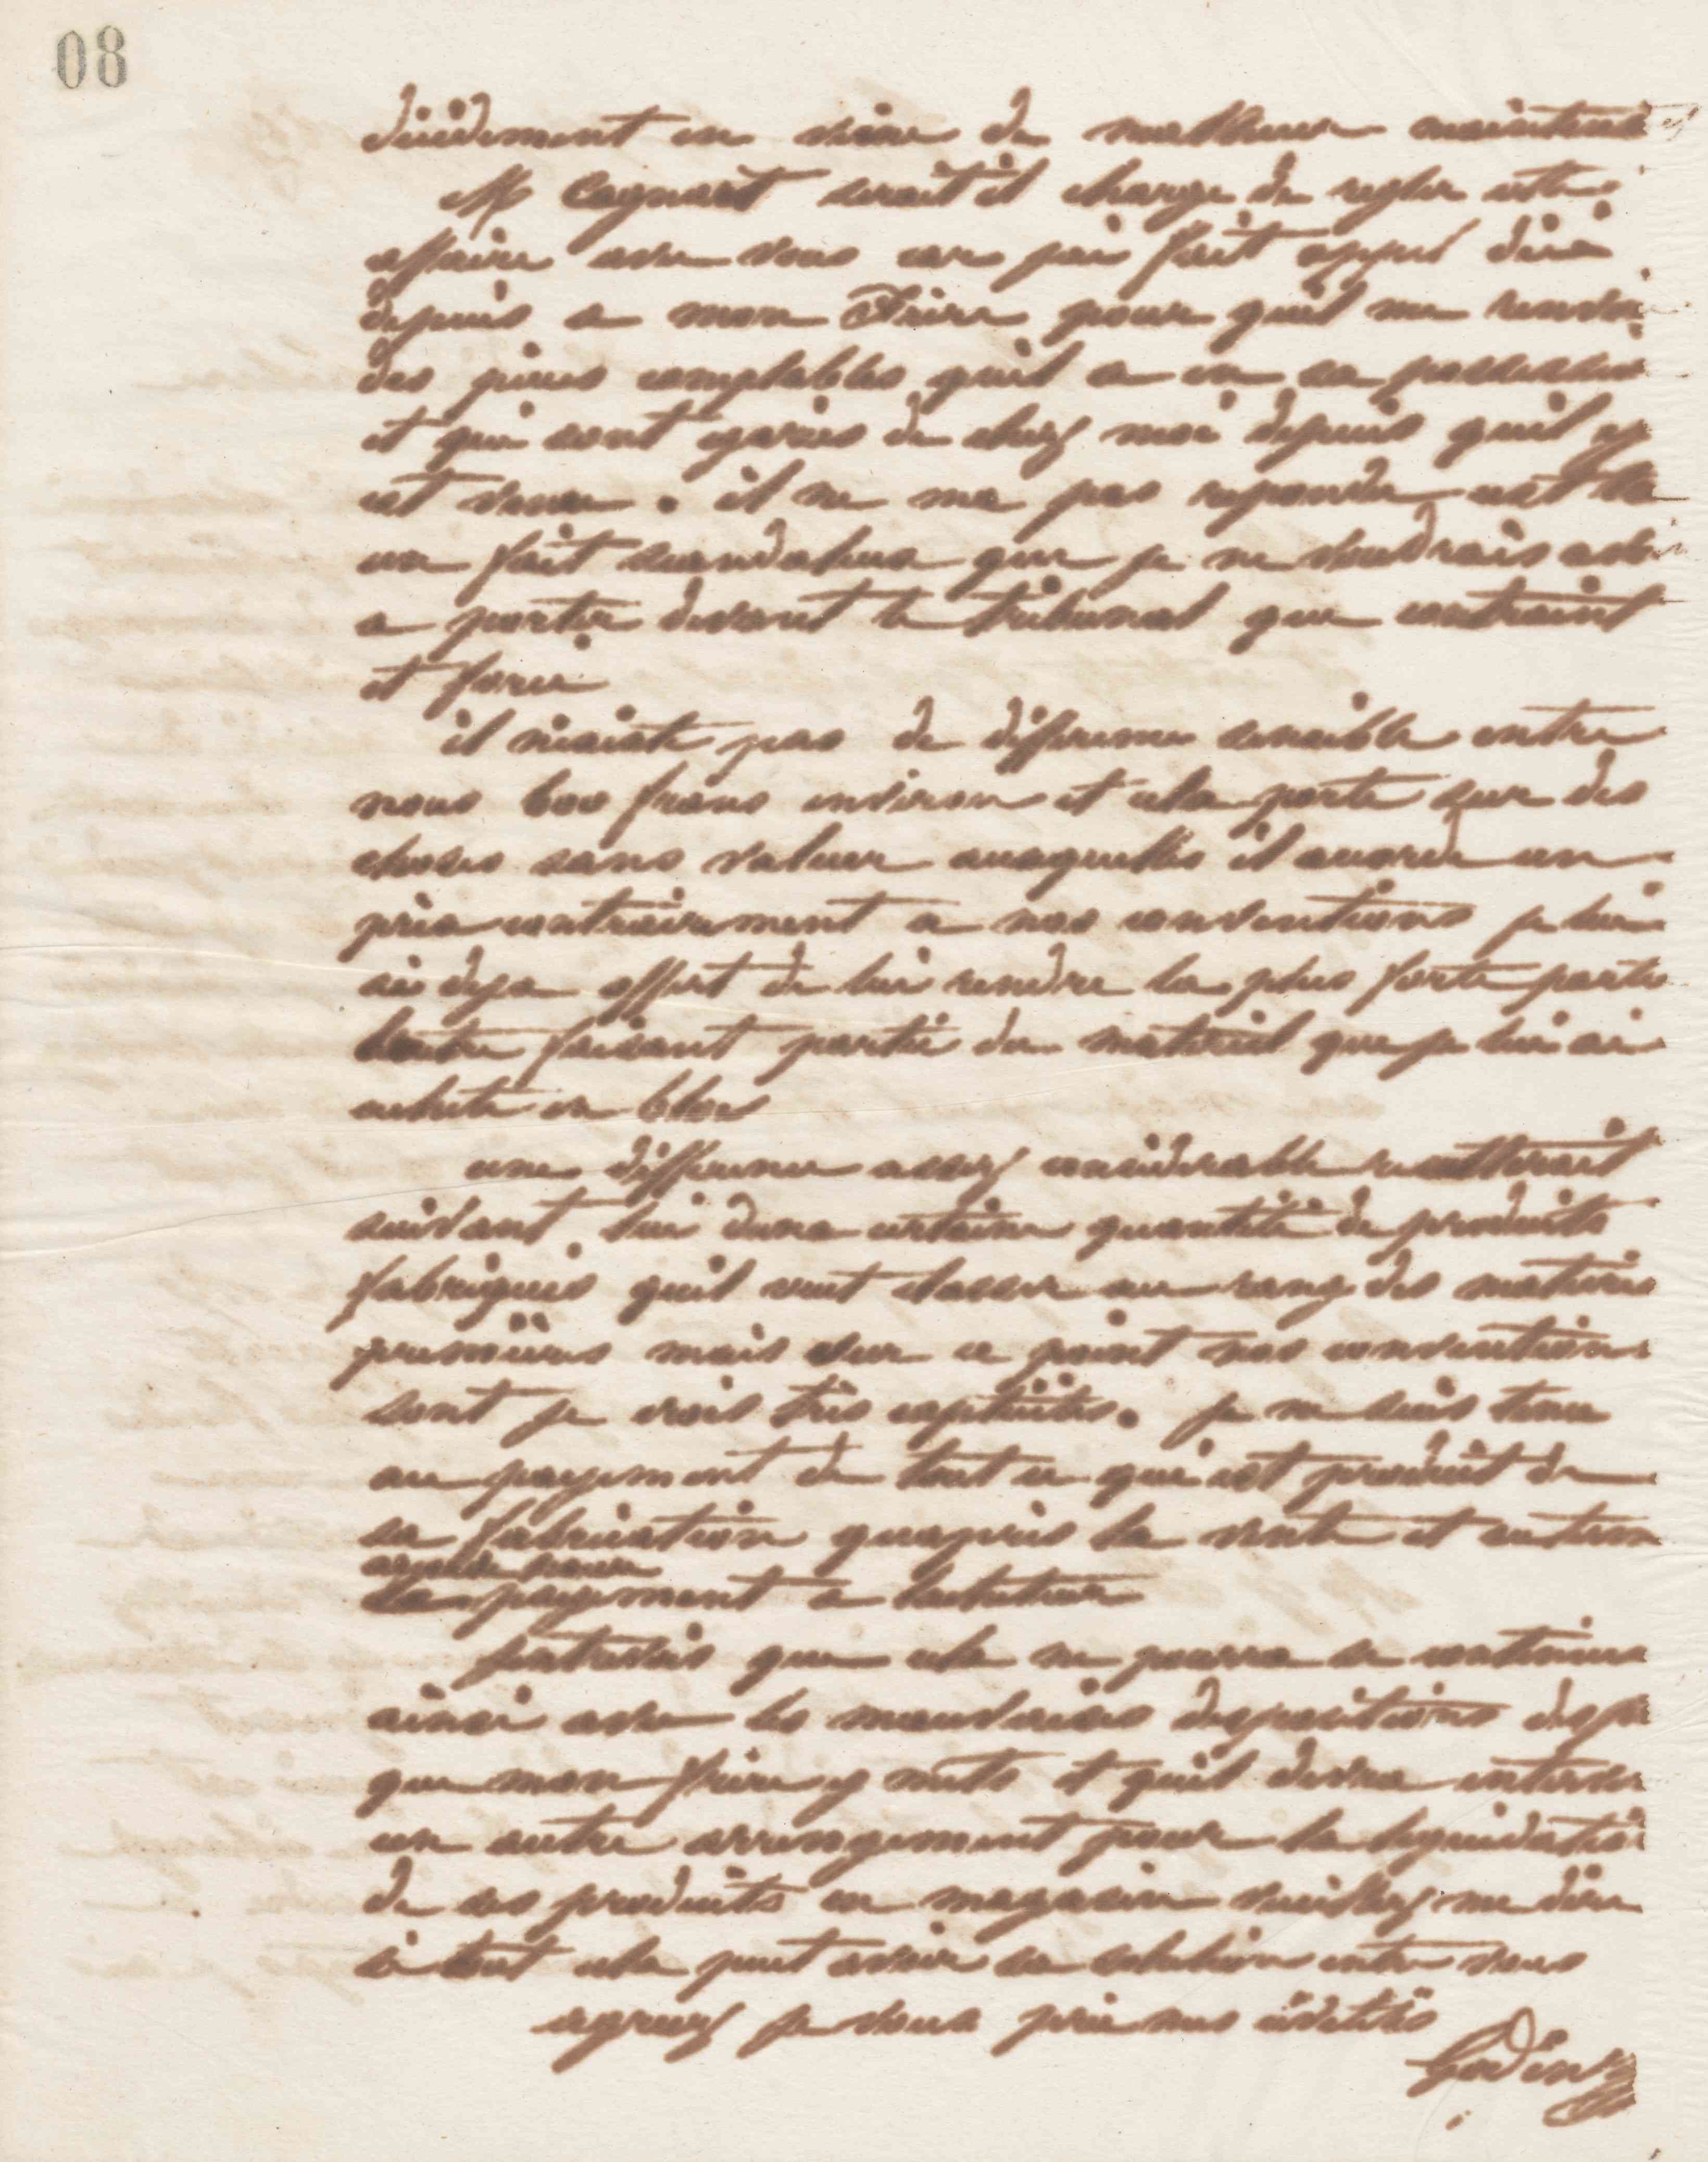 08
décidement en veine de malheur maintenant
Mr Cagnart serait il charge de regler cette
affaire avec vous car jai fait appel
depuis a mon frère pour quil me
des pieces comptables quil a en sa possession
et qui sont egarées de chez moi depuis quil y
est venu. il ne ma pas repondu cest la
un fait scandaleux que je ne voudrais
a porter devant le tribunal que contraint
et forcé
il nexiste pas de difference sensible entre
nous 600 francs environ et cela porte sur des
choses sans valeur auxquelles il accorde un
prix contrairement a nos conventions je lui
ai deja offert de lui rendre la plus forte partie
lautre faisant partie du materiel que je lui ai
acheté en bloc
une difference assez considerable resulterait
suivant lui dune certaine quantité de produits
fabriqués quil veut classer au rang des matières
premières mais sur ce point nos conventions
sont je crois très explicites. je ne suis tenu
au payement de tout ce qui est produit de
sa fabrication quaprès la vente et
payement a lacheteur
jentrevois que cela ne pourra se continuer
ainsi avec les mauvaises dispositions
que mon frère y mets et quil devra
un autre arrangement pour la liquidation
de ses produits en magasin veuillez me dire
si tout cela peut avoir sa solution entre vous
agreez je vous prie mes civilités
Godin